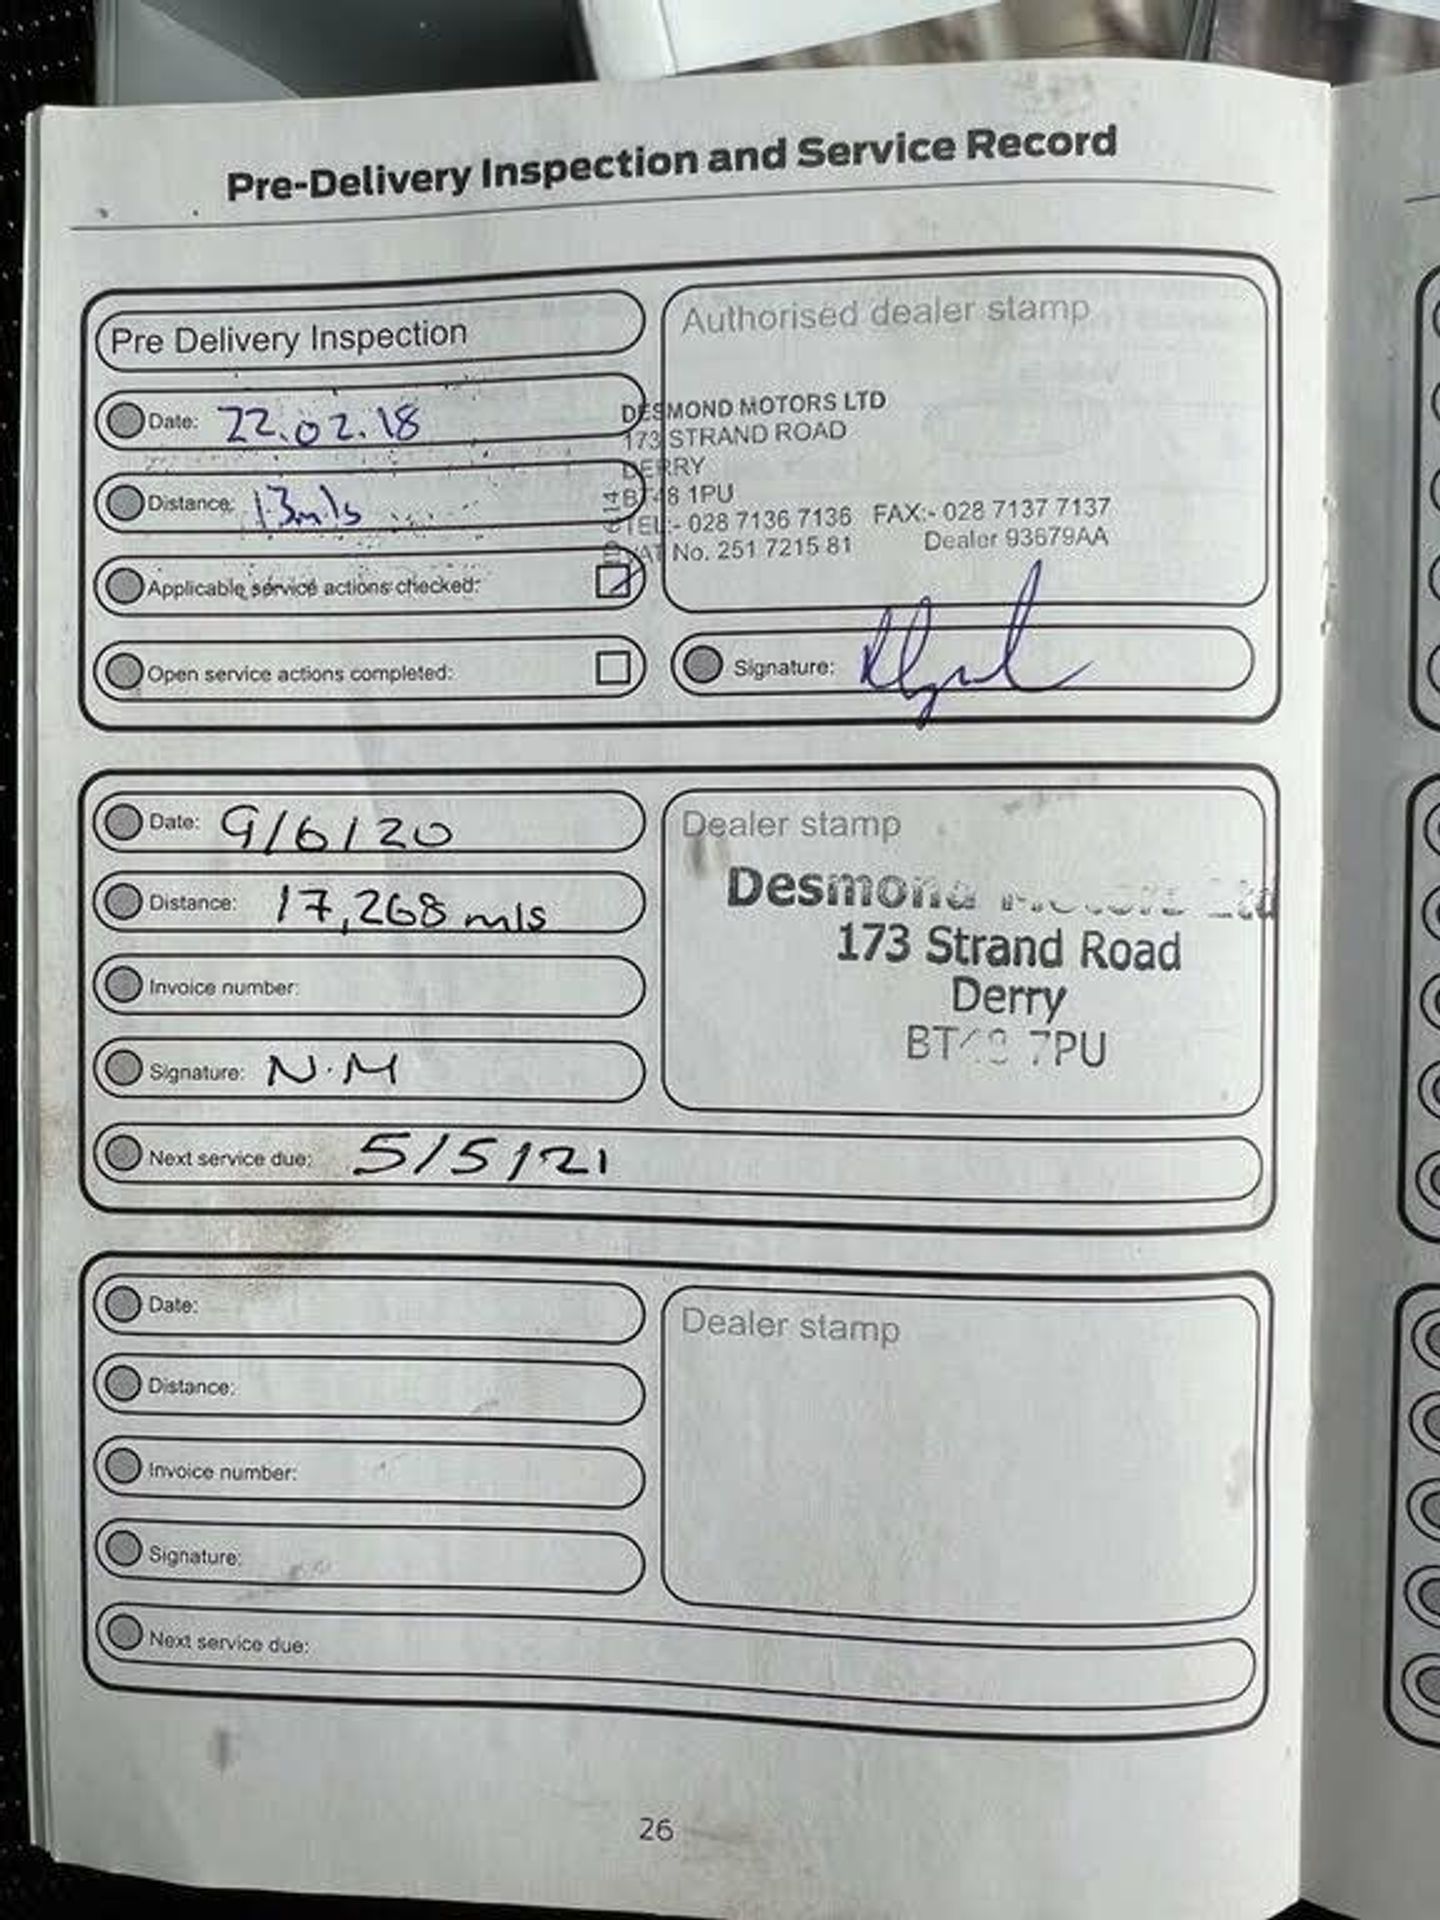 Pre-Delivery Inspection and Service Record
Pre Delivery Inspection
Date: 22.02.18
Distance: 13mls
Applicable service actions checked:
Open service actions completed:
Authorised dealer stamp
DESMOND MOTORS LTD
173 STRAND ROAD
DERRY
BT48 1PU
TEL:- 028 7136 7136 FAX:- 028 7137 7137
VAT No. 251 7215 81 Dealer 93679AA
Signature:
Date: 9/6/20
Distance: 17,268 mls
Invoice number:
Signature: N.M
Next service due: 5/5/21
Dealer stamp
Desmond Motors Ltd
173 Strand Road
Derry
BT48 7PU
Date:
Distance:
Invoice number:
Signature:
Next service due:
Dealer stamp
26